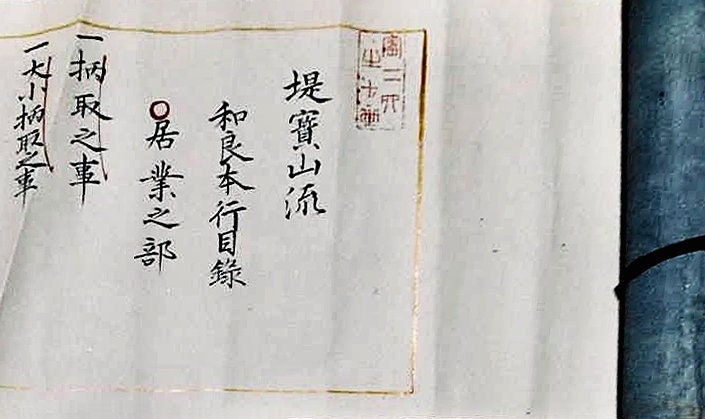 堤寶山流
和良本行目錄
○居業之部
一柄取之事
一大小柄取之事